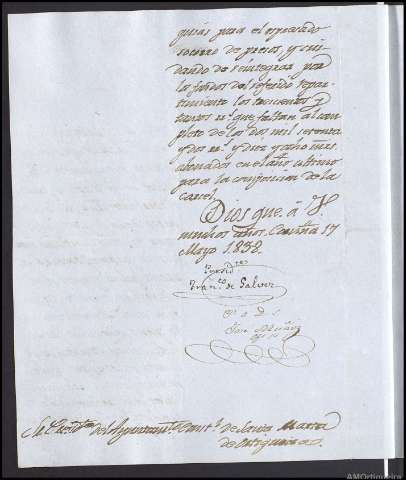 guias para el espresado
socorro de presos, y cui-
dando de reintegrar por
los fondos del referido repar-
timiento los trescientos y
tantos rs. que faltan al com-
pleto de los dos mil setenta
y dos rs. y diez y ocho mrs.
abonados en el año ultimo
para la composicion de la
carcel.
Dios gue. á V
muchos años. Coruña 17
Mayo 1838.
Franco. de Galvez
P. A. D. S.
José
del Ayuntamto. Constl. de Santa Marta
de Ortigueira
AMOrtigueira